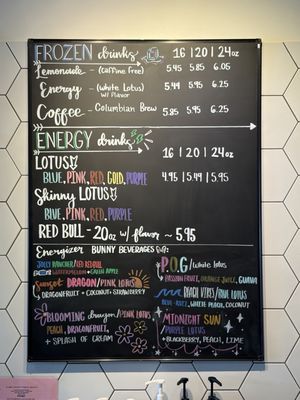 FROZEN drinks 16 | 20 | 24oz
Lemonade - (Caffine Free) 5.45 5.85 6.05
Energy - (White Lotus) w/ Flavor 5.49 5.95 6.25
Coffee - Columbian Brew 5.85 5.95 6.25
ENERGY drinks 16 | 20 | 24oz
LOTUS 4.95 | 5.49 | 5.95
BLUE, PINK, RED, GOLD, PURPLE
Skinny LOTUS
BLUE, PINK, RED, PURPLE
RED BULL - 20oz w/ flavor ~ 5.95
Energizer BUNNY BEVERAGES
JOLLY RANCHER/RED REDBULL
WATERMELON + GREEN APPLE
Sunset DRAGON/PINK LOTUS
DRAGONFRUIT + COCONUT + STRAWBERRY
BLOOMING dragon/PINK LOTUS
PEACH, DRAGONFRUIT,
+ SPLASH OF CREAM
P.O.G/White lotus
PASSION FRUIT, ORANGE JUICE, GUAVA
BEACH VIBES/BLUE LOTUS
BLUE RAZZ, WHITE PEACH, COCONUT
MIDNIGHT SUN/
PURPLE LOTUS
+ BLACKBERRY, PEACH, LIME